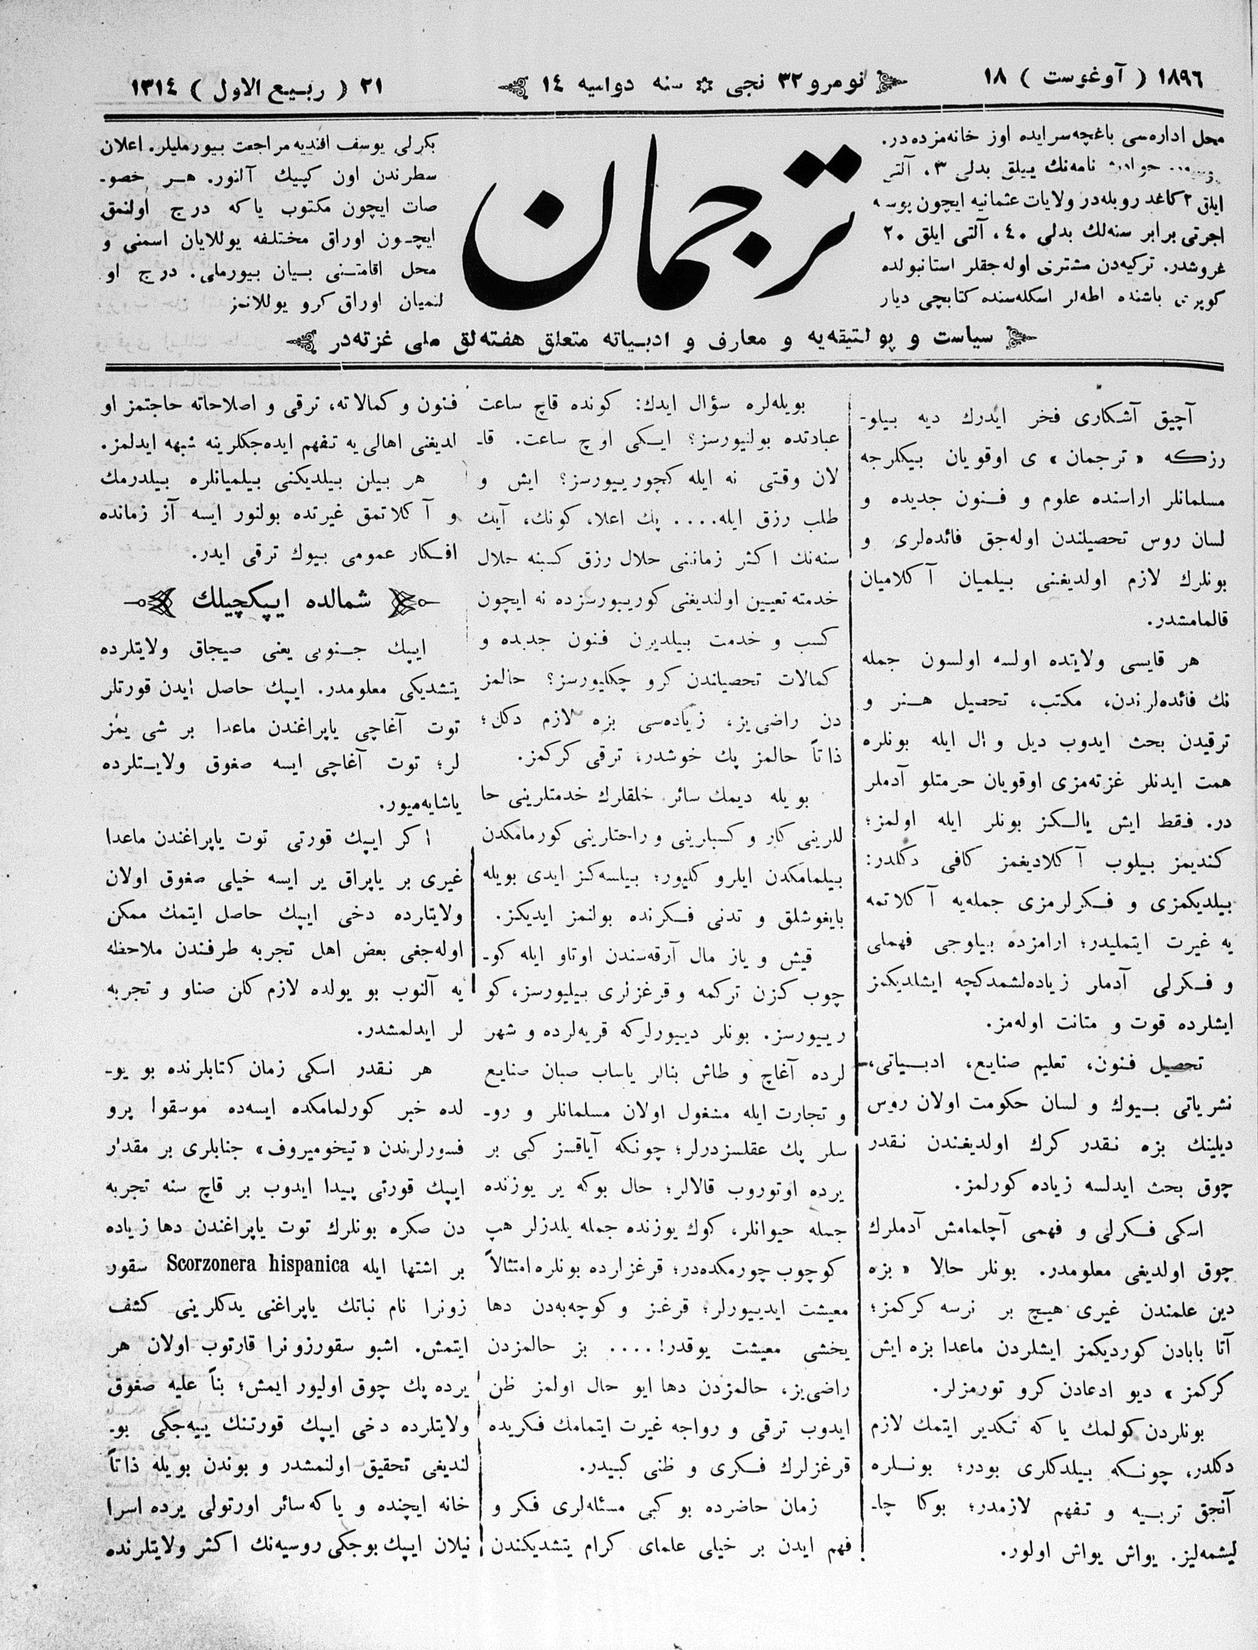 ١٨٩٦ ( آوغوست ) ١٨
نومرو ٣٢ نجی ✡ سنه دوامیه ١٤
٢١ ( ربیع الاول ) ١٣١٤
محل اداره‌سی باغچه‌سرایده اوز خانه‌مزده‌در.
نامه‌نك ییلق بدلی ٣، آلتی
ایلق ٢ كاغد روبله‌در ولایات عثمانیه ایچون پوسه
اجرتی برابر سنه‌لك بدلی ٤٠، آلتی ایلق ٢٠
غروشدر. تركیه‌دن مشتری اوله‌جقلر استانبولده
كوپری باشنده اطه‌لر اسكله‌سنده كتابچی دیار
ترجمان
بكرلی یوسف افندیه مراجعت بیورملیلر. اعلان
سطرندن اون كپیك آلنور. هر خصو-
صات ایچون مكتوب یاكه درج اولنمق
ایچون اوراق مختلفه یوللایان اسمنی و
محل اقامتنی بیان بیورملی. درج او
لنمیان اوراق كرو یوللانمز
سیاست و پولتیقه‌یه و معارف و ادبیاته متعلق هفته‌لق ملی غزته‌در
آچیق آشكاری فخر ایدرك دیه بیلو-
رزكه «ترجمان» ی اوقویان بیكلرجه
مسلمانلر اراسنده علوم و فنون جدیده و
لسان روس تحصیلندن اوله‌جق فائده‌لری و
بونلرك لازم اولدیغنی بیلمیان آكلامیان
قالمامشدر.
هر قایسی ولایتده اولسه اولسون جمله
نك فائده‌لرندن، مكتب، تحصیل هنر و
ترقیدن بحث ایدوب دیل و ال ایله بونلره
همت ایدنلر غزته‌مزی اوقویان حرمتلو آدملر
در. فقط ایش یالكز بونلر ایله اولمز؛
كندیمز بیلوب آكلادیغمز كافی دكلدر:
بیلدیكمزی و فكرلرمزی جمله‌یه آكلاتمه
یه غیرت ایتملیدر؛ ارامزده بیلوجی فهملی
و فكرلی آدملر زیاده‌لشمدكچه ایشلدیكمز
ایشلرده قوت و متانت اوله‌مز.
تحصیل فنون، تعلیم صنایع، ادبیاتی،
نشریاتی بیوك و لسان حكومت اولان روس
دیلینك بزه نقدر كرك اولدیغندن نقدر
چوق بحث ایدلسه زیاده كورلمز.
اسكی فكرلی و فهمی آچلمامش آدملرك
چوق اولدیغی معلومدر. بونلر حالا «بزه
دین علمندن غیری هیچ بر نرسه كركمز؛
آتا بابادن كوردیكمز ایشلردن ماعدا بزه ایش
كركمز» دیو ادعادن كرو تورمزلر.
بونلردن كولمك یاكه تكدیر ایتمك لازم
دكلدر، چونكه بیلدكلری بودر؛ بونلره
آنجق تربیه و تفهم لازمدر؛ بوكا چا-
لیشمه‌لیز. یواش یواش اولور.
بویله‌لره سؤال ایدك: كونده قاچ ساعت
عبادتده بولنیورسز؟ ایكی اوچ ساعت. قا-
لان وقتی نه ایله كچوریورسز؟ ایش و
طلب رزق ایله.... پك اعلا، كونك، آیك
سنه‌نك اكثر زماننی حلال رزق كسبنه حلال
خدمته تعیین اولندیغنی كوریبورسزده نه ایچون
كسب و خدمت بیلدیرن فنون جدیده و
كمالات تحصیلندن كرو چكلیورسز؟ حالمز
دن راضی‌یز، زیاده‌سی بزه لازم دكل؛
ذاتاً حالمز پك خوشدر، ترقی كركمز.
بویله دیمك سائر خلقلرك خدمتلرینی حا
للرینی كار و كسبارینی و راحتارینی كورمامكدن
بیلمامكدن ایلرو كلیور؛ بیلسه‌كز ایدی بویله
بایغوشلق و تدنی فكرنده بولنمز ایدیكز.
قیش و یاز مال آرقه‌سندن اوتاو ایله كو-
چوب كزن تركمه و قرغزلری بیلیورسز، كو
ریبورسز. بونلر دیبورلركه قریه‌لرده و شهر
لرده آغاچ و طاش بنالر یاساب صبان صنایع
و تجارت ایله مشغول اولان مسلمانلر و رو-
سلر پك عقلسزدرلر؛ چونكه آیاقسز كبی بر
یرده اوتوروب قالالر؛ حال بوكه یر یوزنده
جمله حیوانلر، كوك یوزنده جمله یلدزلر هپ
كوچوب چورمكده‌در؛ قرغزلرده بونلره امتثالاً
معیشت ایدیبورلر؛ قرغز و كوچه‌به‌دن دها
یخشی معیشت یوقدر!.... بز حالمزدن
راضی‌یز، حالمزدن دها ایو حال اولمز ظن
ایدوب ترقی و رواجه غیرت ایتمامك فكریده
قرغزلرك فكری و ظنی كبیدر.
زمان حاضرده بو كبی مسئله‌لری فكر و
فهم ایدن بر خیلی علمای كرام یتشدیكندن
فنون و كمالاته، ترقی و اصلاحاته حاجتمز او
لدیغنی اهالی‌یه تفهم ایده‌جكلرینه شبهه ایدلمز.
هر بیلن بیلدیكنی بیلمیانلره بیلدرمك
و آكلاتمق غیرتده بولنور ایسه آز زمانده
افكار عمومی بیوك ترقی ایدر.
شمالده ایپكچیلك
ایپك جنوبی یعنی صیجاق ولایتلرده
یتشدیكی معلومدر. ایپك حاصل ایدن قورتلر
توت آغاچی یاپراغندن ماعدا بر شی یمز
لر؛ توت آغاچی ایسه صغوق ولایتلرده
یاشایه‌میور.
اكر ایپك قورتی توت یاپراغندن ماعدا
غیری بر یاپراق یر ایسه خیلی صغوق اولان
ولایتلرده دخی ایپك حاصل ایتمك ممكن
اوله‌جغی بعض اهل تجربه طرفندن ملاحظه
یه آلنوب بو یولده لازم كلن صناو و تجربه
لر ایدلمشدر.
هر نقدر اسكی زمان كتابلرنده بو یو-
لده خبر كورلمامكده ایسه‌ده موسقوا پرو
فسورلرندن «تیخومیروف» جنابلری بر مقدار
ایپك قورتی پیدا ایدوب بر قاچ سنه تجربه
دن صكره بونلرك توت یاپراغندن دها زیاده
بر اشتها ایله Scorzonera hispanica سقور
زونرا نام نباتك یاپراغنی یدكلرینی كشف
ایتمش. اشبو سقورزونرا قارتوب اولان هر
یرده پك چوق اولیور ایمش؛ بناً علیه صغوق
ولایتلرده دخی ایپك قورتنك ییه‌جكی بو-
لندیغی تحقیق اولنمشدر و بوندن بویله ذاتاً
خانه ایچنده و یاكه سائر اورتولی یرده اسرا
نیلان ایپك بوجكی روسیه‌نك اكثر ولایتلرنده